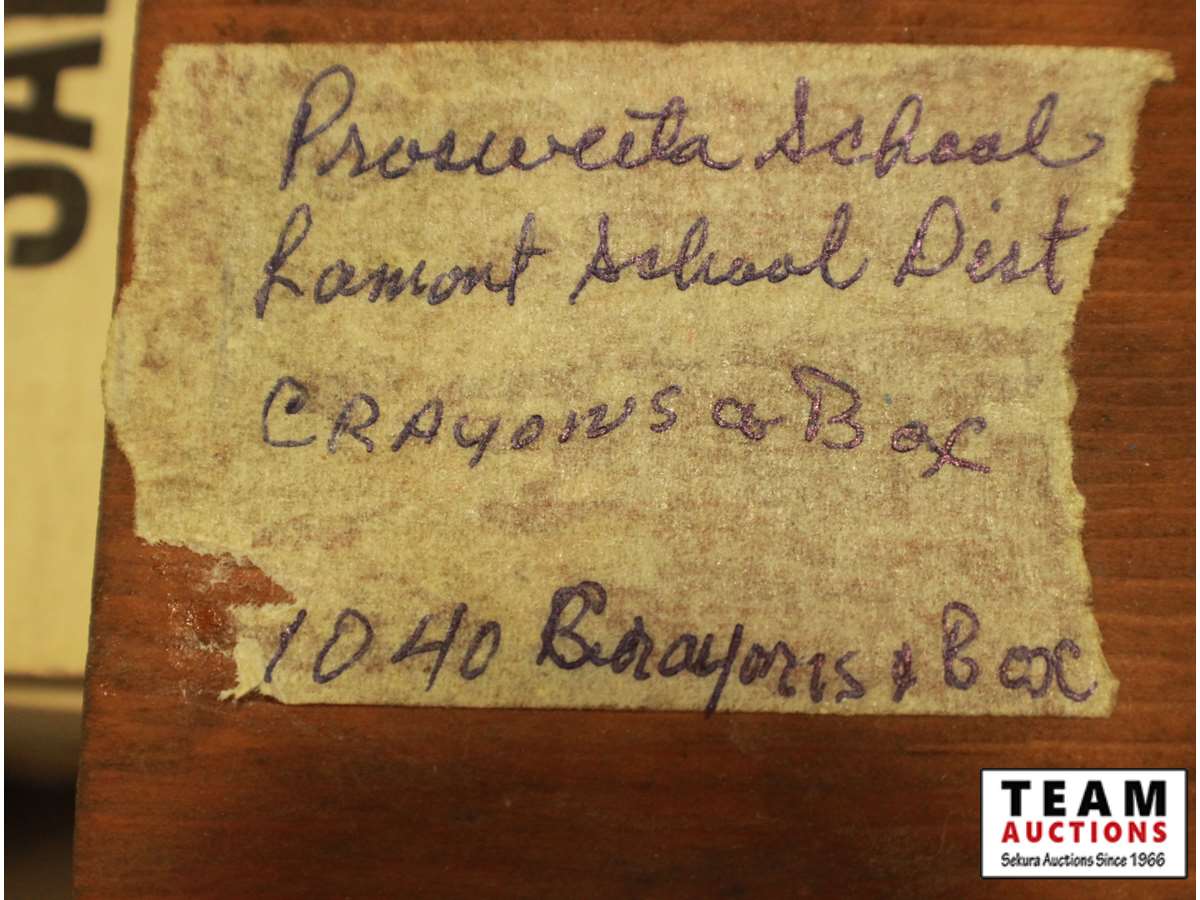 SA
Prosweeta School
Lamont School Dist
CRAyons & Box
1040 Brayons & Box
TEAM
AUCTIONS
Sekura Auctions Since 1966